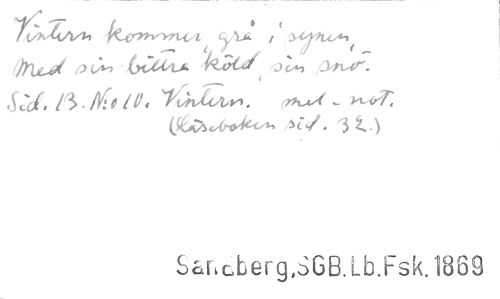 Vintern kommer, grå i synen,
Med sin bittra köld, sin snö.
Sid. 13. N:o 10. Vintern. mel-not.
(Läseboken sid. 32.)
Sandberg.SGB.Lb.Fsk.1869